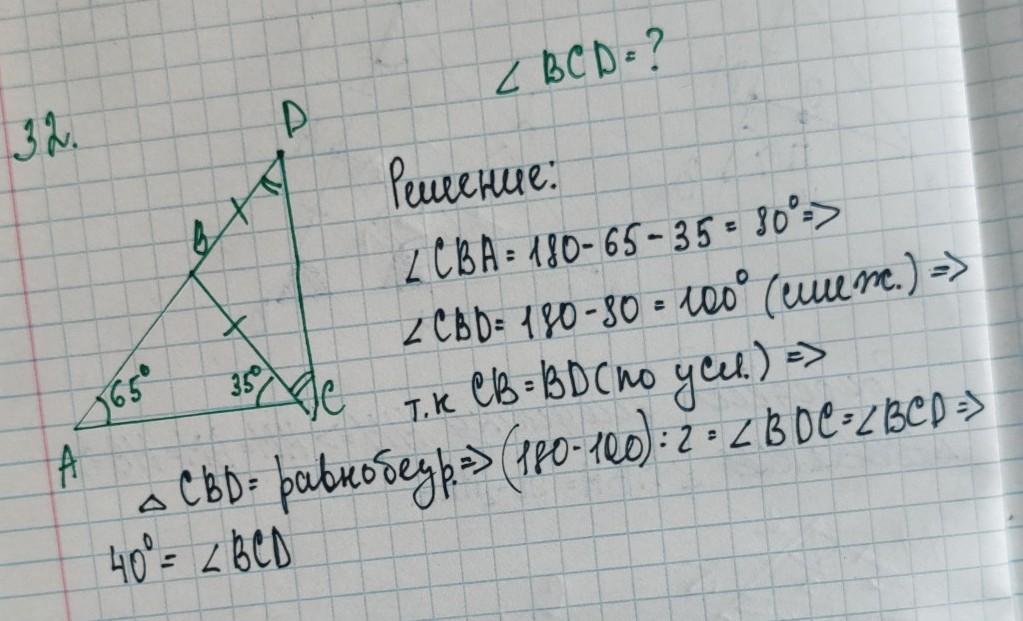 ∠ BCD = ?
32.
D
B
65°
35°
A
C
Решение:
∠CBA = 180 - 65 - 35 = 80° =>
∠CBD = 180 - 80 = 100° (смеж.) =>
т.к CB = BD (по усл.) =>
△ CBD = равнобедр. => (180 - 100) : 2 = ∠BDC = ∠BCD =>
40° = ∠BCD